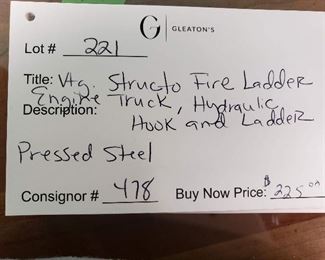 G | GLEATON'S
Lot # 221
Title: Vtg. Structo Fire Ladder
Engine Truck, Hydraulic
Description: Hook and Ladder
Pressed Steel
Consignor # 478 Buy Now Price: $225.00